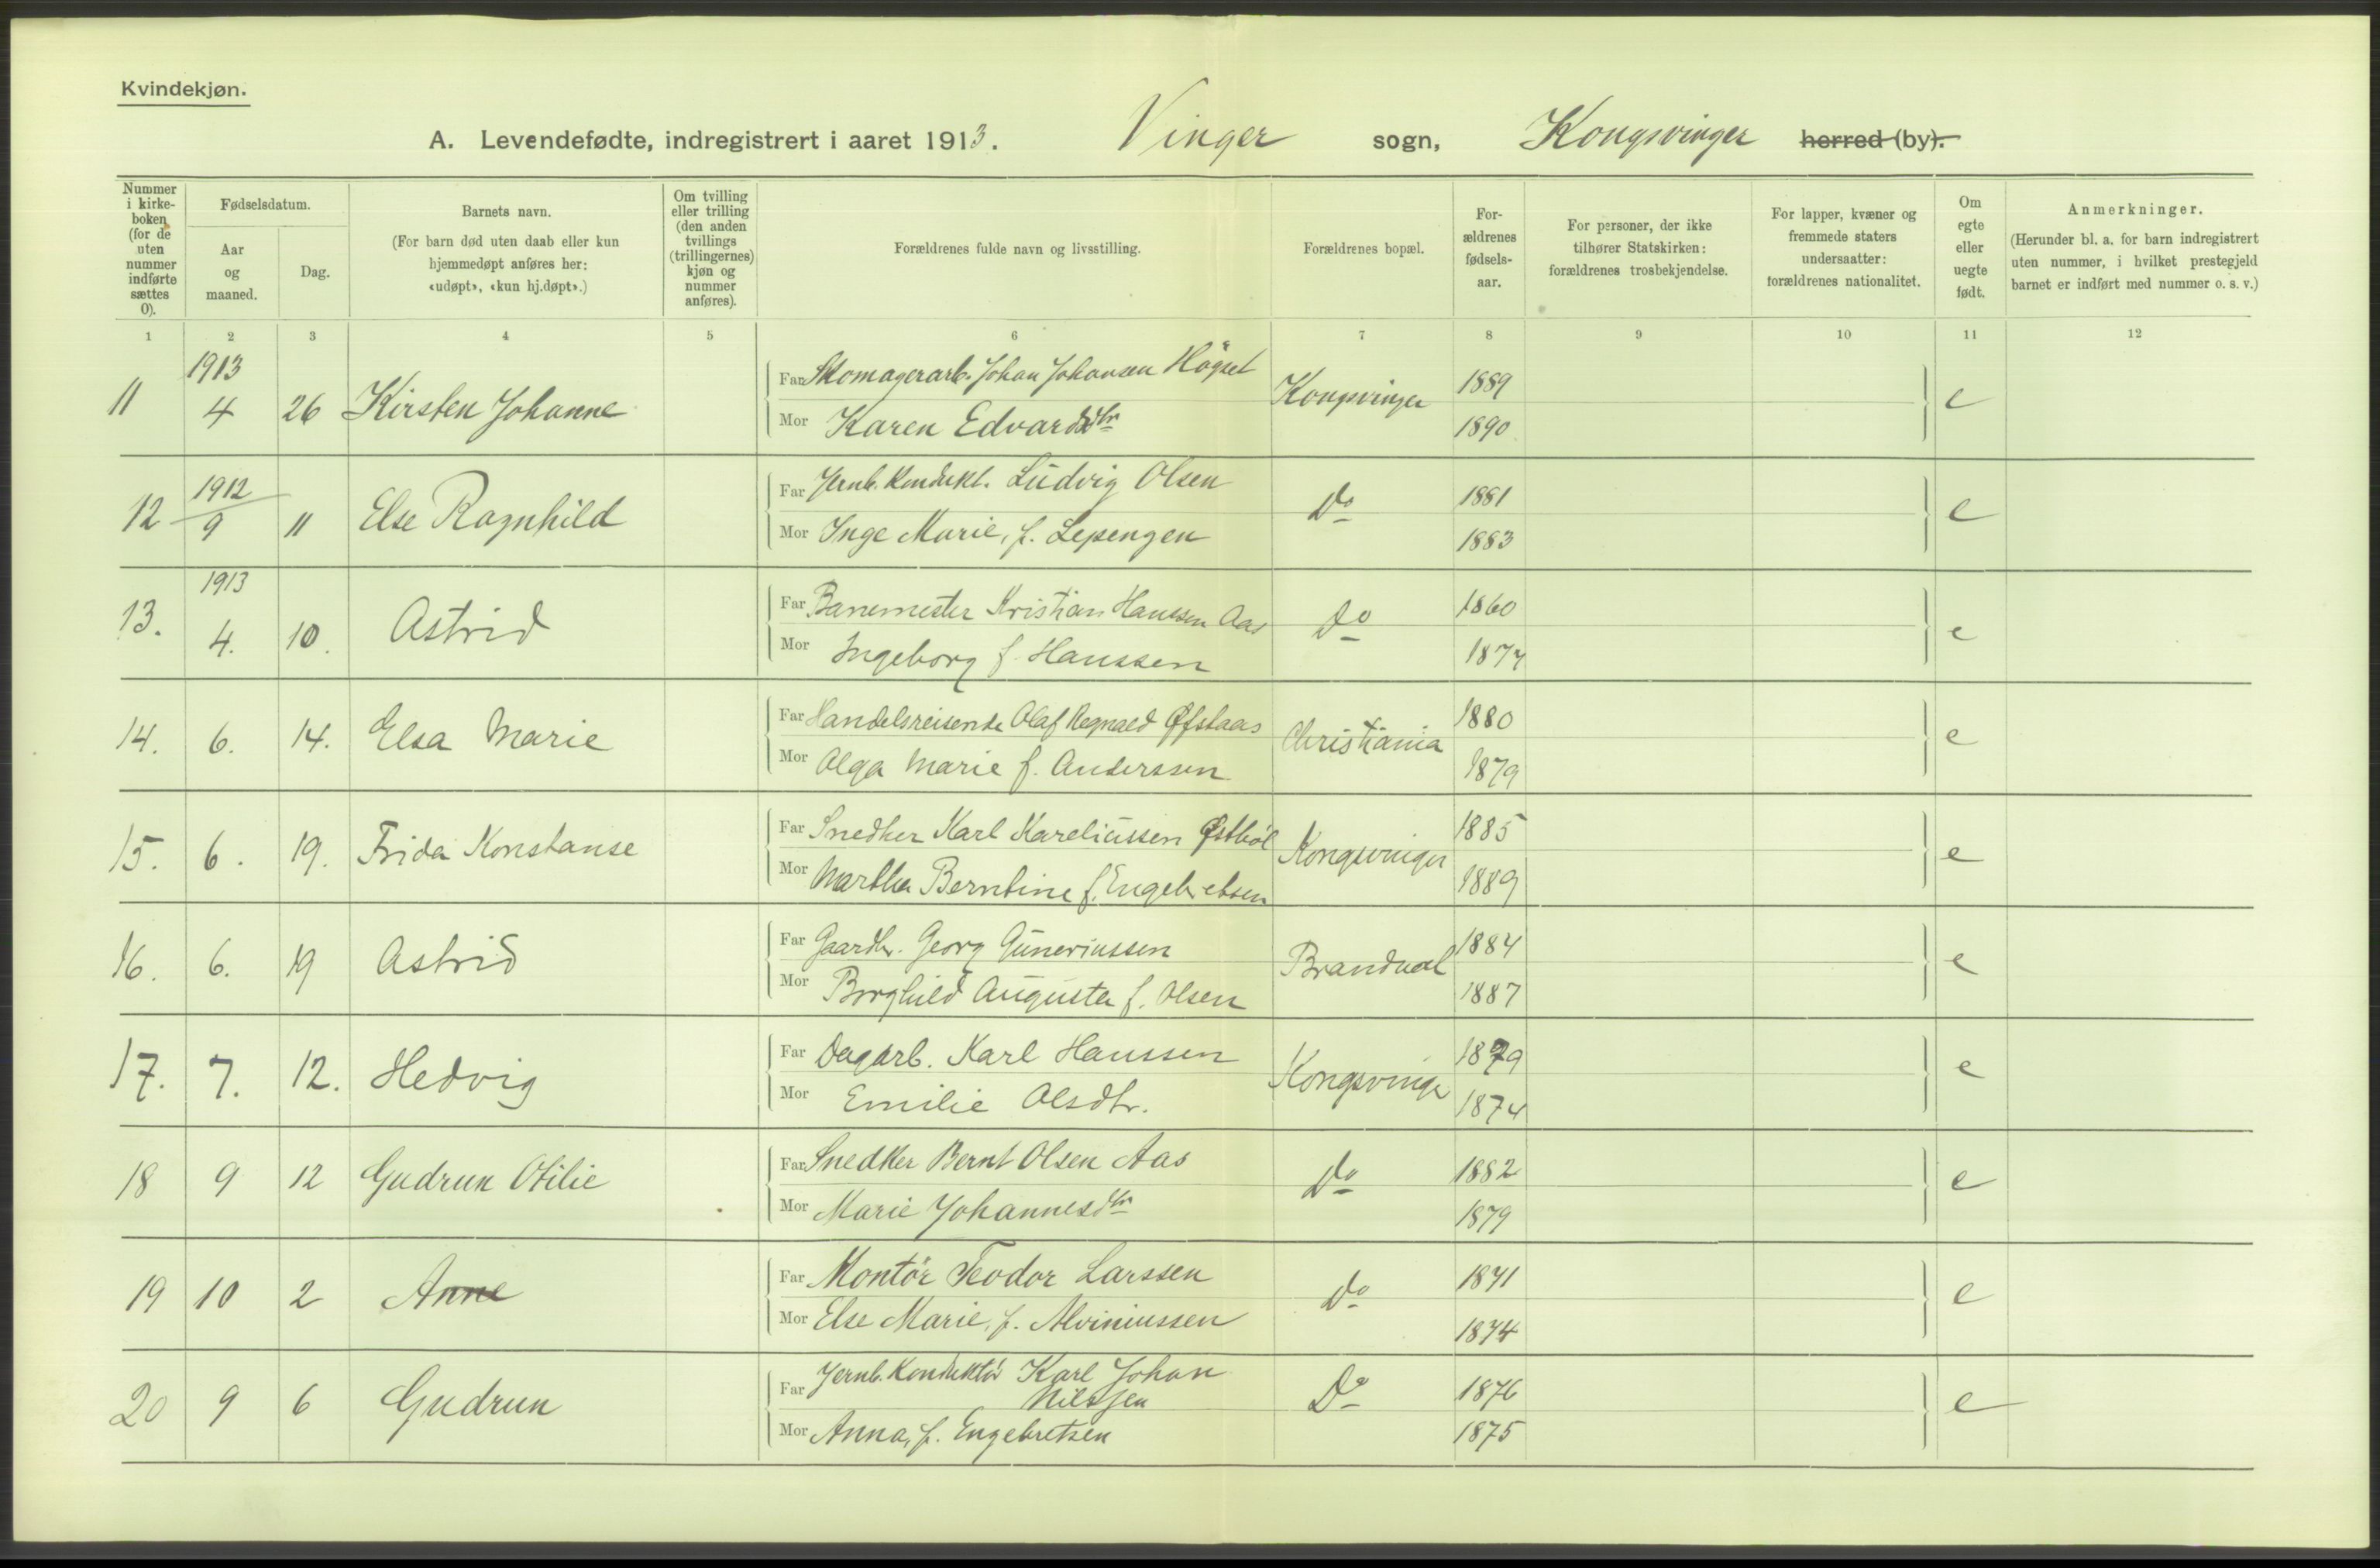 Kvindekjøn.
A. Levendefødte, indregistrert i aaret 1913. Vinger sogn, Kongsvinger herred (by).
Nummer i kirkeboken (for de uten nummer indførte sættes 0).
Fødselsdatum.
Aar og maaned.
Dag.
Barnets navn.
(For barn død uten daab eller kun hjemmedøpt anføres her: «udøpt», «kun hj.døpt».)
Om tvilling eller trilling (den anden tvillings (trillingernes) kjøn og nummer anføres).
Forældrenes fulde navn og livsstilling.
Forældrenes bopæl.
Forældrenes fødselsaar.
For personer, der ikke tilhører Statskirken: forældrenes trosbekjendelse.
For lapper, kvæner og fremmede staters undersaatter: forældrenes nationalitet.
Om egte eller uegte født.
Anmerkninger.
(Herunder bl. a. for barn indregistrert uten nummer, i hvilket prestegjeld barnet er indført med nummer o. s. v.)
1 2 3 4 5 6 7 8 9 10 11 12
1913
11 4 26 Kirsten Johanne Far Skomagerarb. Johan Johansen Kongsvinger 1889 e
Mor Karen Edvardsdtr 1890
1912
12 9 11 Else Ragnhild Far Jernb. Kondukt. Ludvig Olsen Do 1881 e
Mor Inge Marie, f. Lepengen 1883
1913
13. 4. 10. Astrid Far Banemester Kristian Hanssen Aas Do 1860 e
Mor Ingeborg f. Hanssen 1877
14. 6. 14. Elsa Marie Far Handelsreisende Olaf Regnald Øfstaas Christiania 1880 e
Mor Olga Marie f. Anderssen 1879
15. 6. 19. Frida Konstanse Far Snedker Karl Kareliussen Østbøl Kongsvinger 1885 e
Mor Martha Berntine f. Engebretsen 1889
16. 6. 19 Astrid Far Gaardbr. Georg Guneriussen Brandval 1884 e
Mor Borghild Augusta f. Olsen 1887
17. 7. 12. Hedvig Far Dagarb. Karl Hanssen Kongsvinger 1879 e
Mor Emilie Olsdtr. 1874
18 9 12 Gudrun Otilie Far Snedker Bernt Olsen Aas Do 1882 e
Mor Marie Johannesdtr 1879
19 10 2 Anne Far Montör Teodor Larssen Do 1871 e
Mor Else Marie, f. Alviniussen 1874
20 9 6 Gudrun Far Jernb. Konduktör Karl Johan Nilssen Do 1876 e
Mor Anna, f. Engebretsen 1875